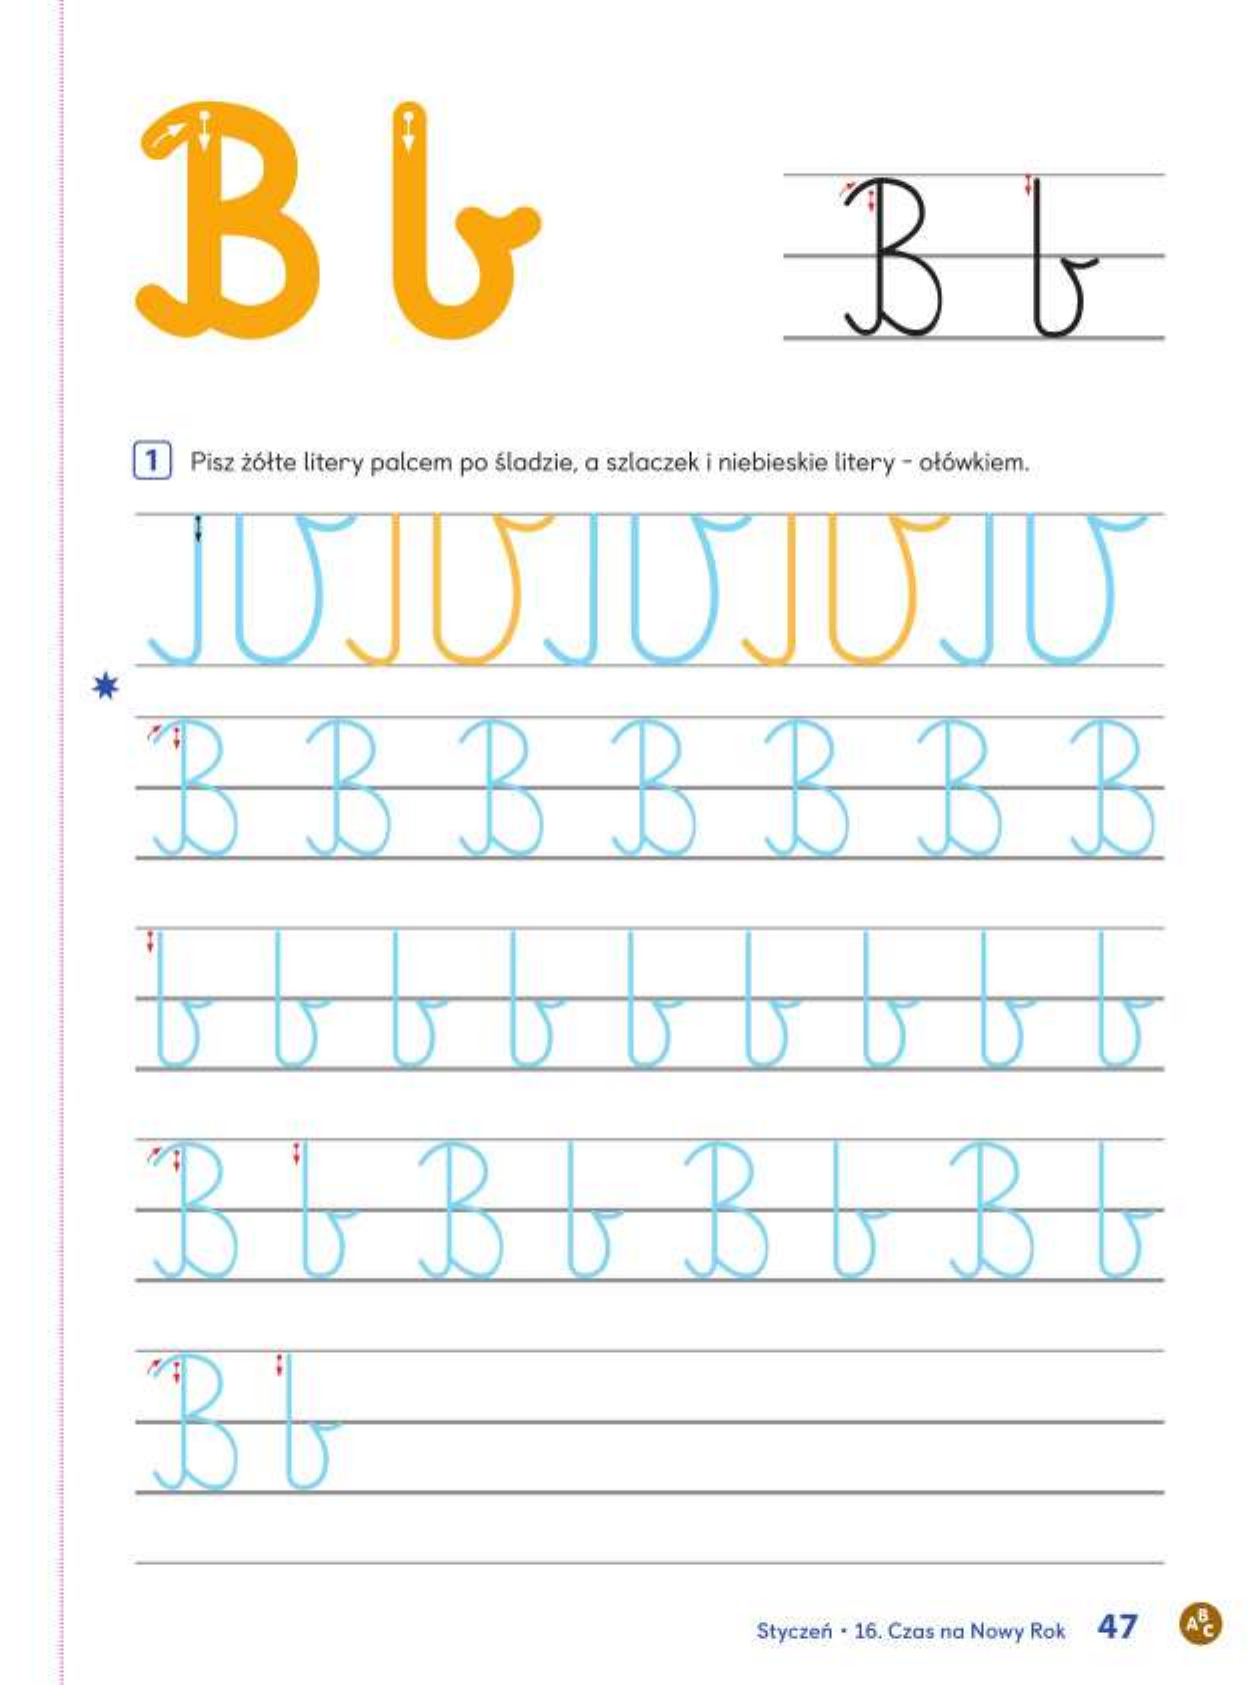 B b
B b
1 Pisz żółte litery palcem po śladzie, a szlaczek i niebieskie litery – ołówkiem.
B B B B B B B
b b b b b b b b b
B b B b B b B b
B b
Styczeń • 16. Czas na Nowy Rok 47
ABC